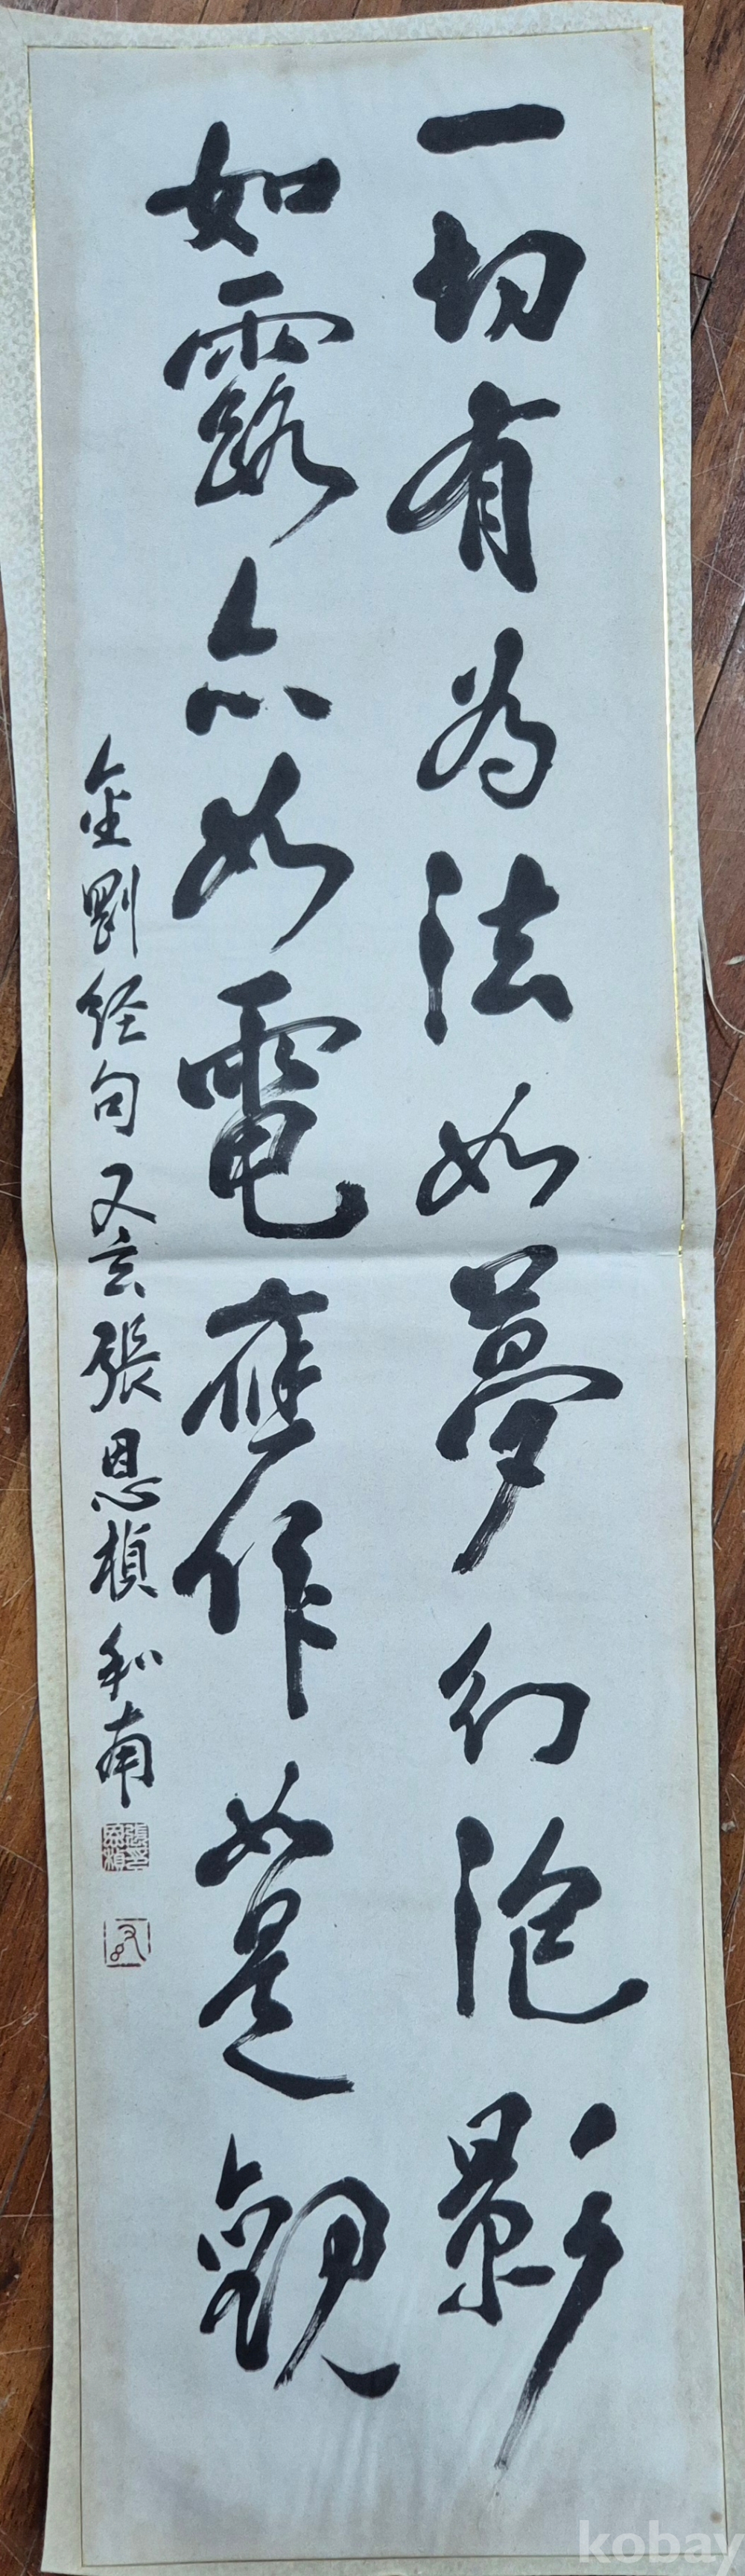 一切有為法如夢幻泡影
如露亦如電應作如是觀
金剛經句 又玄張恩楨和南
張恩楨印
kobay